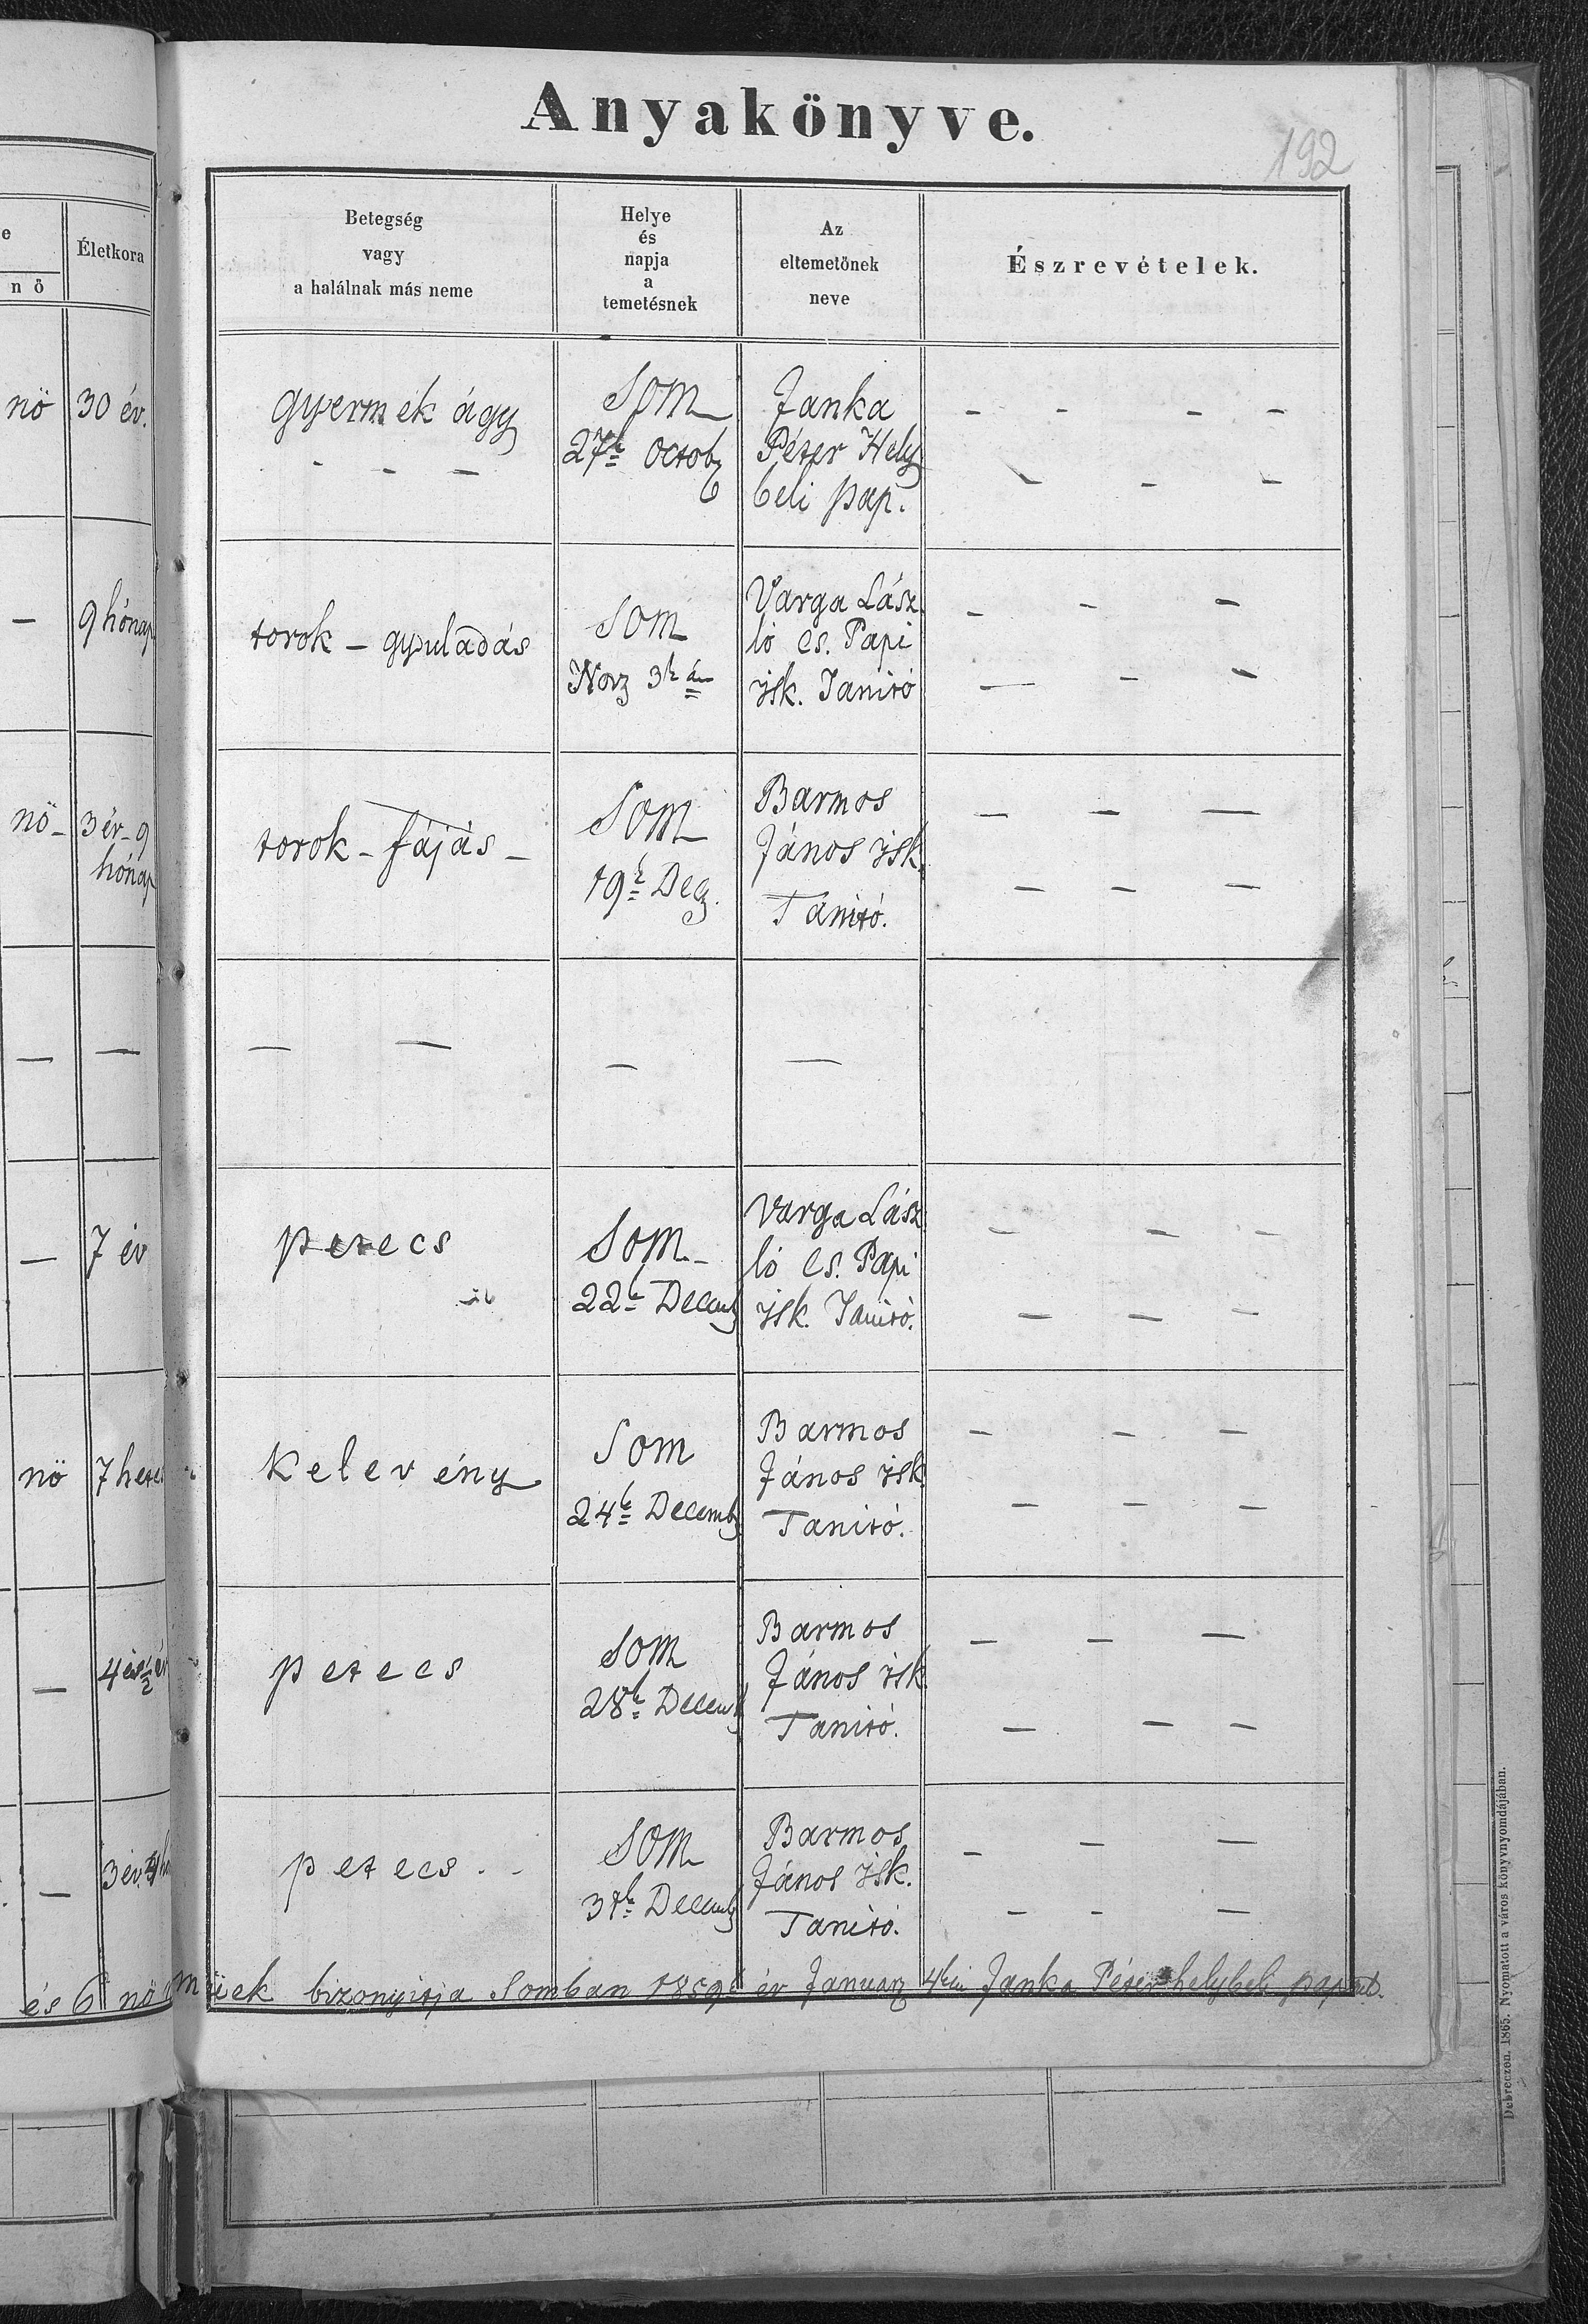 Anyakönyve.
192
e
nő
Életkora
Betegség
vagy
a halálnak más neme
Helye
és
napja
a
temetésnek
Az
eltemetőnek
neve
Észrevételek.
nö 30 év.
gyermek ágy
- - -
Som
27k Octob
Janka
Péter Hely
beli pap.
- - - -
- - -
- 9 hónap
torok - gyuladás
Som
3k án
Varga Lász
ló cs. Papi
isk. Tanitó
- - -
- - -
nö - 3 év - 9
hónap
torok - fájás -
Som
19k Dec
Barmos
János isk.
Tanitó.
- - -
- - -
- -
- -
-
-
- 7 év
petecs
Som -
22k Decemb
Varga Lász
ló cs. Papi
isk. Tanitó.
- - -
- - -
nö 7 hetes
Kelevény
Som
24k Decemb
Barmos
János isk.
Tanitó.
- - -
- - -
- 4 és 1/2 év
petecs
Som
28k Decemb
Barmos
János isk.
Tanitó.
- - -
- - -
- 3 év
petecs - -
Som
31k Decemb
Barmos
János isk.
Tanitó.
- - -
- - -
és 6 nö bizonyitja Somban 1859 év Januar 4kén Janka Péter helybeli
Debreczen. 1865. Nyomatott a város könyvnyomdájában.